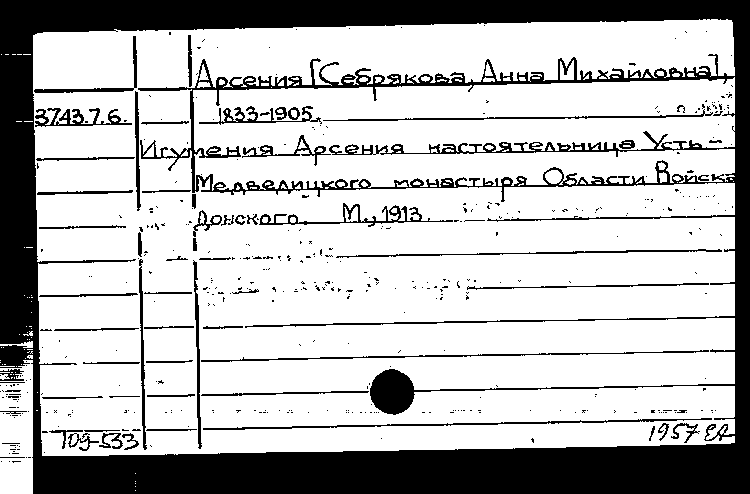 Арсения [Себрякова, Анна Михайловна],
3743.7.6. 1833-1905.
Игумения Арсения настоятельница Усть-
Медведицкого монастыря Области Войска
Донского. М., 1913.
109-533 1957 ЕА